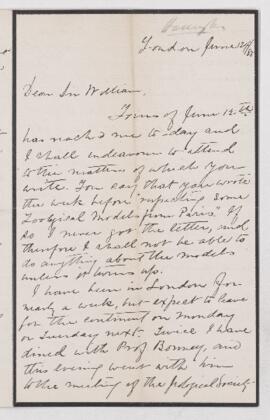 London June 12th
Dear Sir William,
Yours of June 12th
has reached me to-day and
I shall endeavour to attend
to the matters of which you
write. You say that you wrote
the week before repeating some
Zoological Models from Paris. If
so I never got the letter, and
therefore I shall not be able to
do anything about the models
unless it turns up.
I have been in London for
nearly a week, but expect to leave
for the continent on Monday
or Tuesday next. Twice I have
dined with Prof Bonney, and
this evening went with him
to the meeting of the Society